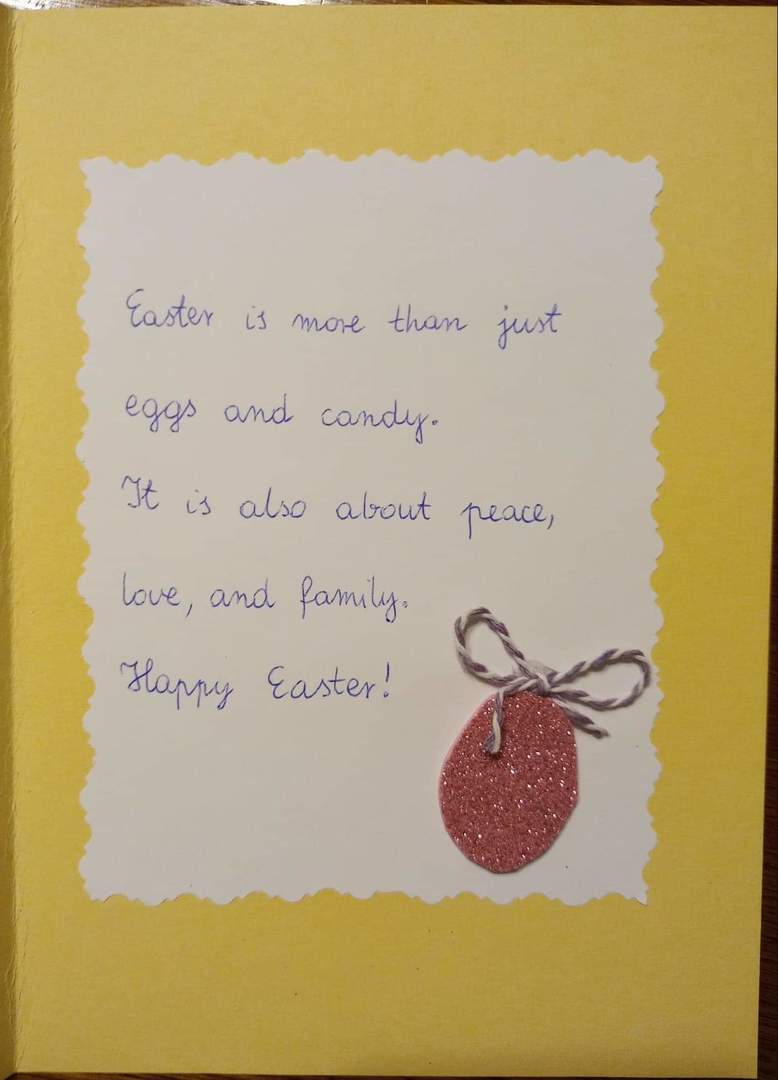 Easter is more than just
eggs and candy.
It is also about peace,
love, and family.
Happy Easter!